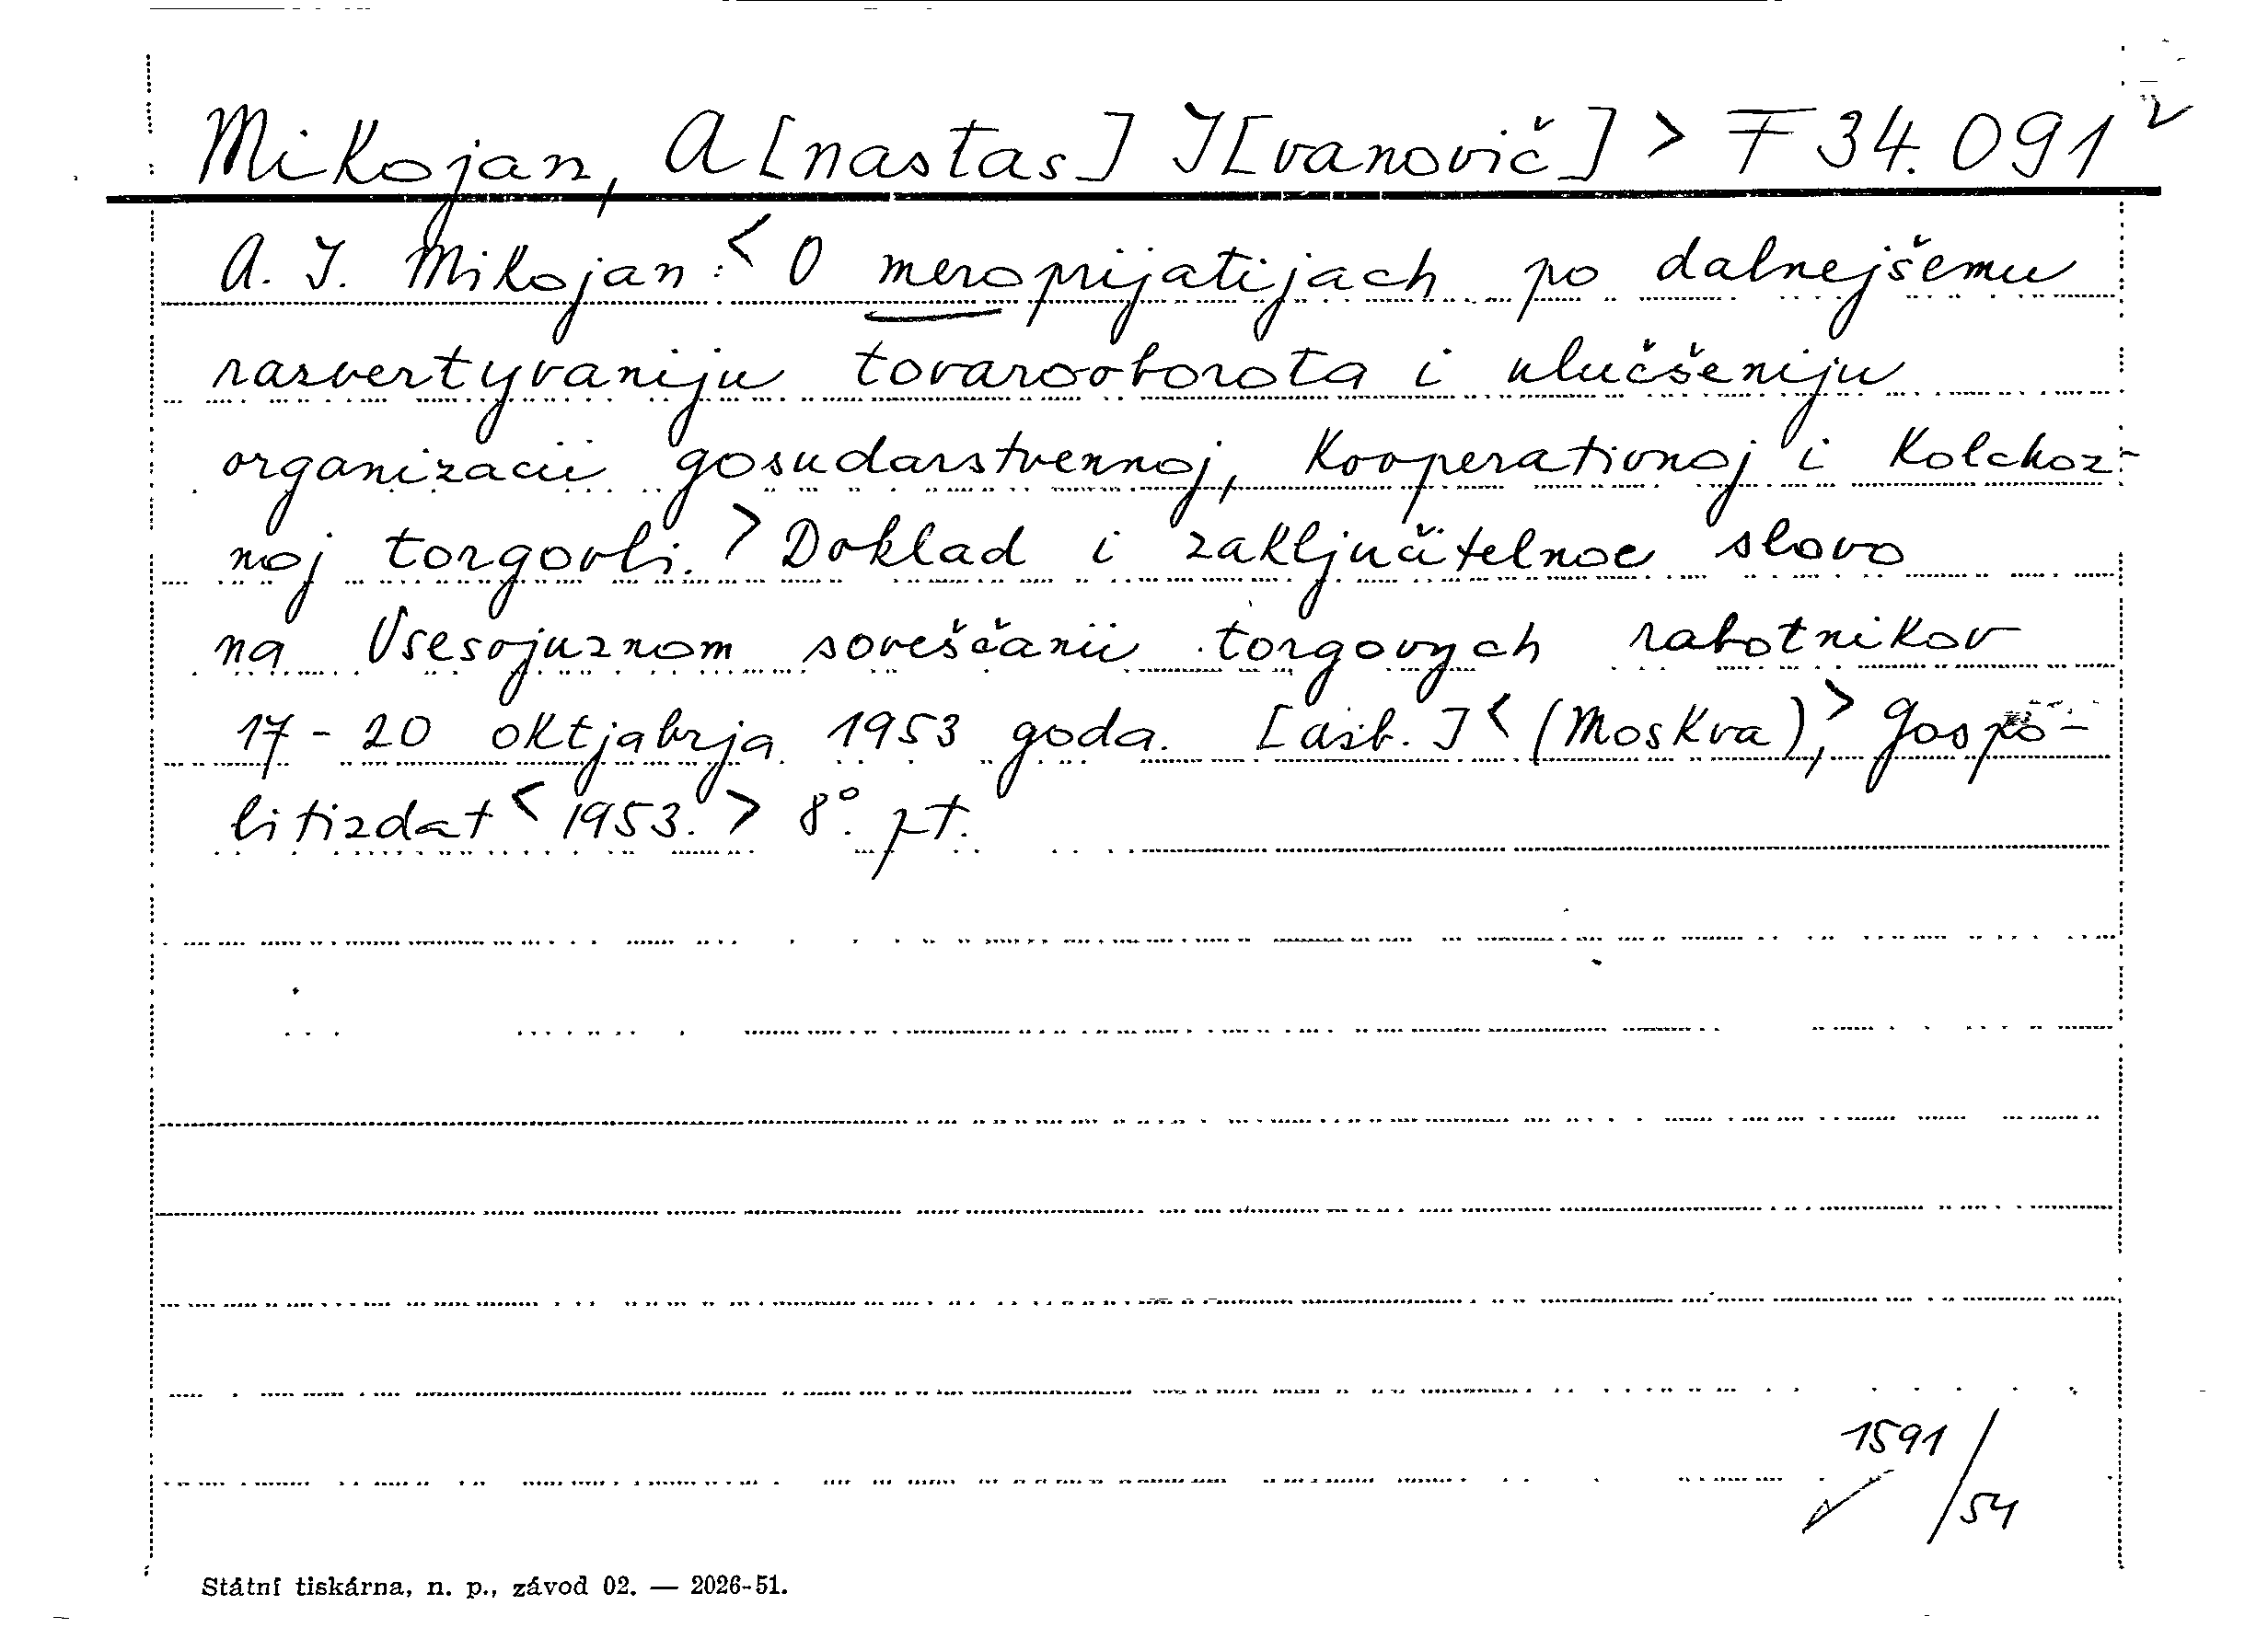 Mikojan, A[nastas] I[vanovič] > F 34.091
A. I. Mikojan: < O meroprijatijach po dalnejšemu
razvertyvaniju tovarooborota i ulučšeniju
organizacii gosudarstvennoj, kooperativnoj i kolchoz-
noj torgovli. > Doklad i zaključitelnoe slovo
na Vsesojuznom soveščanii torgovych rabotnikov
17-20 oktjabrja 1953 goda. [azb.] < (Moskva), > Gospo-
litizdat < 1953. > 8°. pt.
1591/54
Státní tiskárna, n. p., závod 02. — 2026-51.